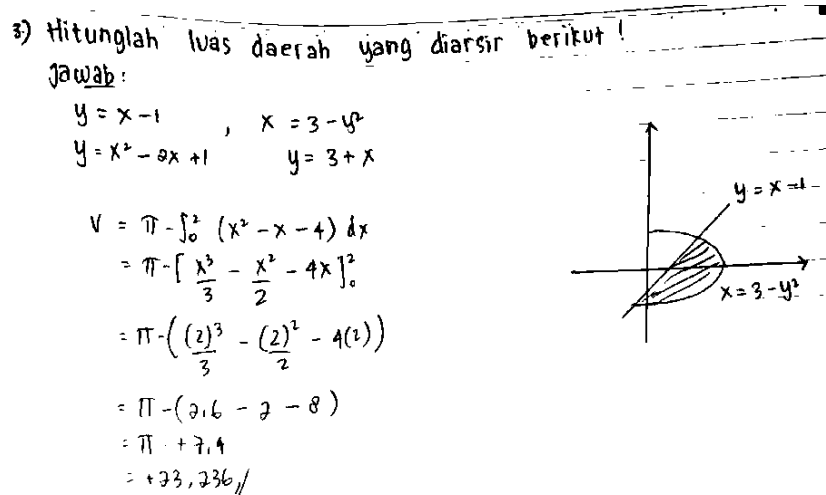 3.) Hitunglah luas daerah yang diarsir berikut !
Jawab :
y = x - 1 , x = 3 - y²
y = x² - 2x + 1 y = 3 + x
V = π - ∫₀² (x² - x - 4) dx
= π - [ x³/3 - x²/2 - 4x ]₀²
= π - ( (2)³/3 - (2)²/2 - 4(2) )
= π - (2,6 - 2 - 8)
= π + 7,4
= +23,236 //
y = x - 1
x = 3 - y²